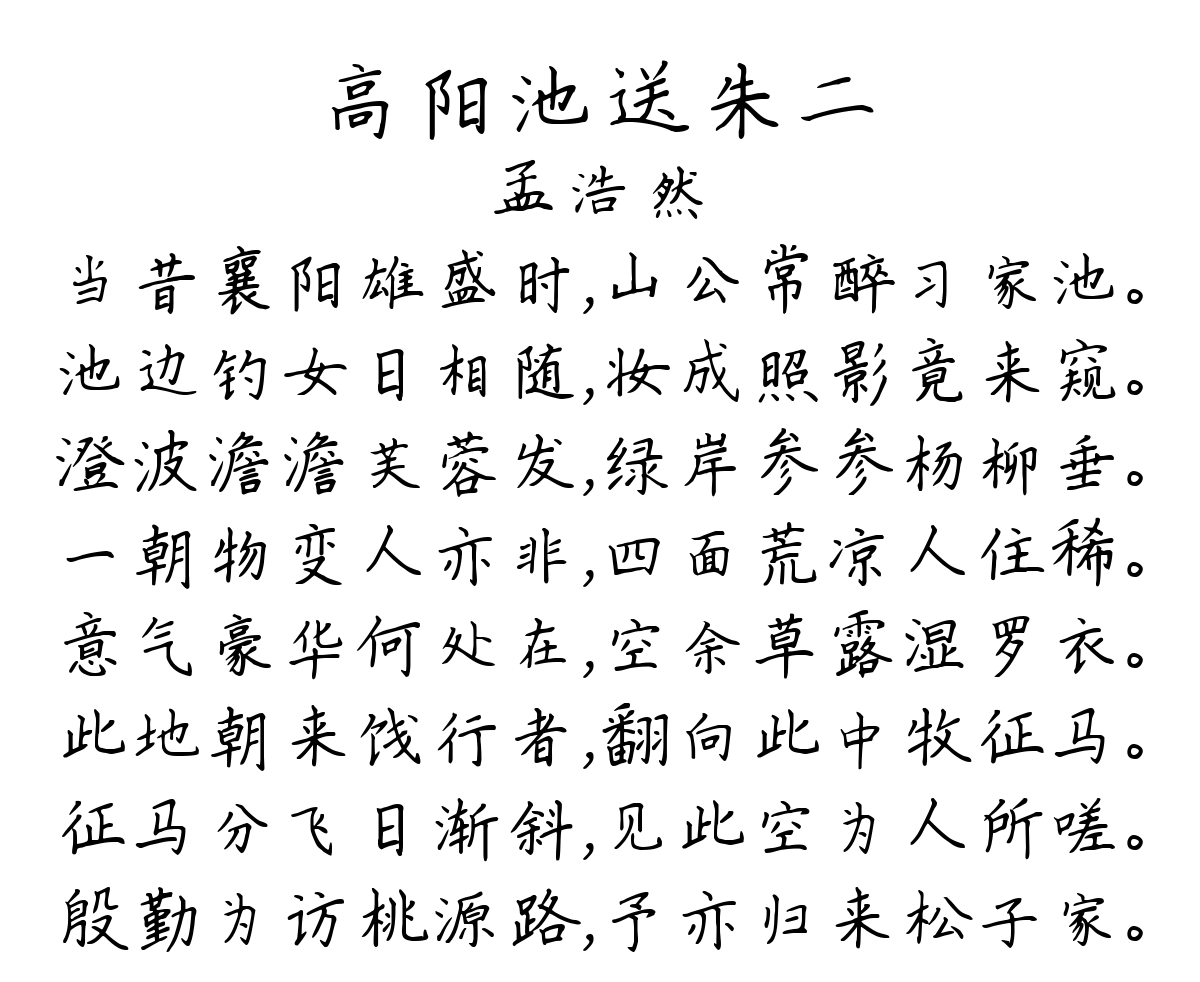 高阳池送朱二
孟浩然
当昔襄阳雄盛时,山公常醉习家池。
池边钓女日相随,妆成照影竟来窥。
澄波澹澹芙蓉发,绿岸参参杨柳垂。
一朝物变人亦非,四面荒凉人住稀。
意气豪华何处在,空余草露湿罗衣。
此地朝来饯行者,翻向此中牧征马。
征马分飞日渐斜,见此空为人所嗟。
殷勤为访桃源路,予亦归来松子家。